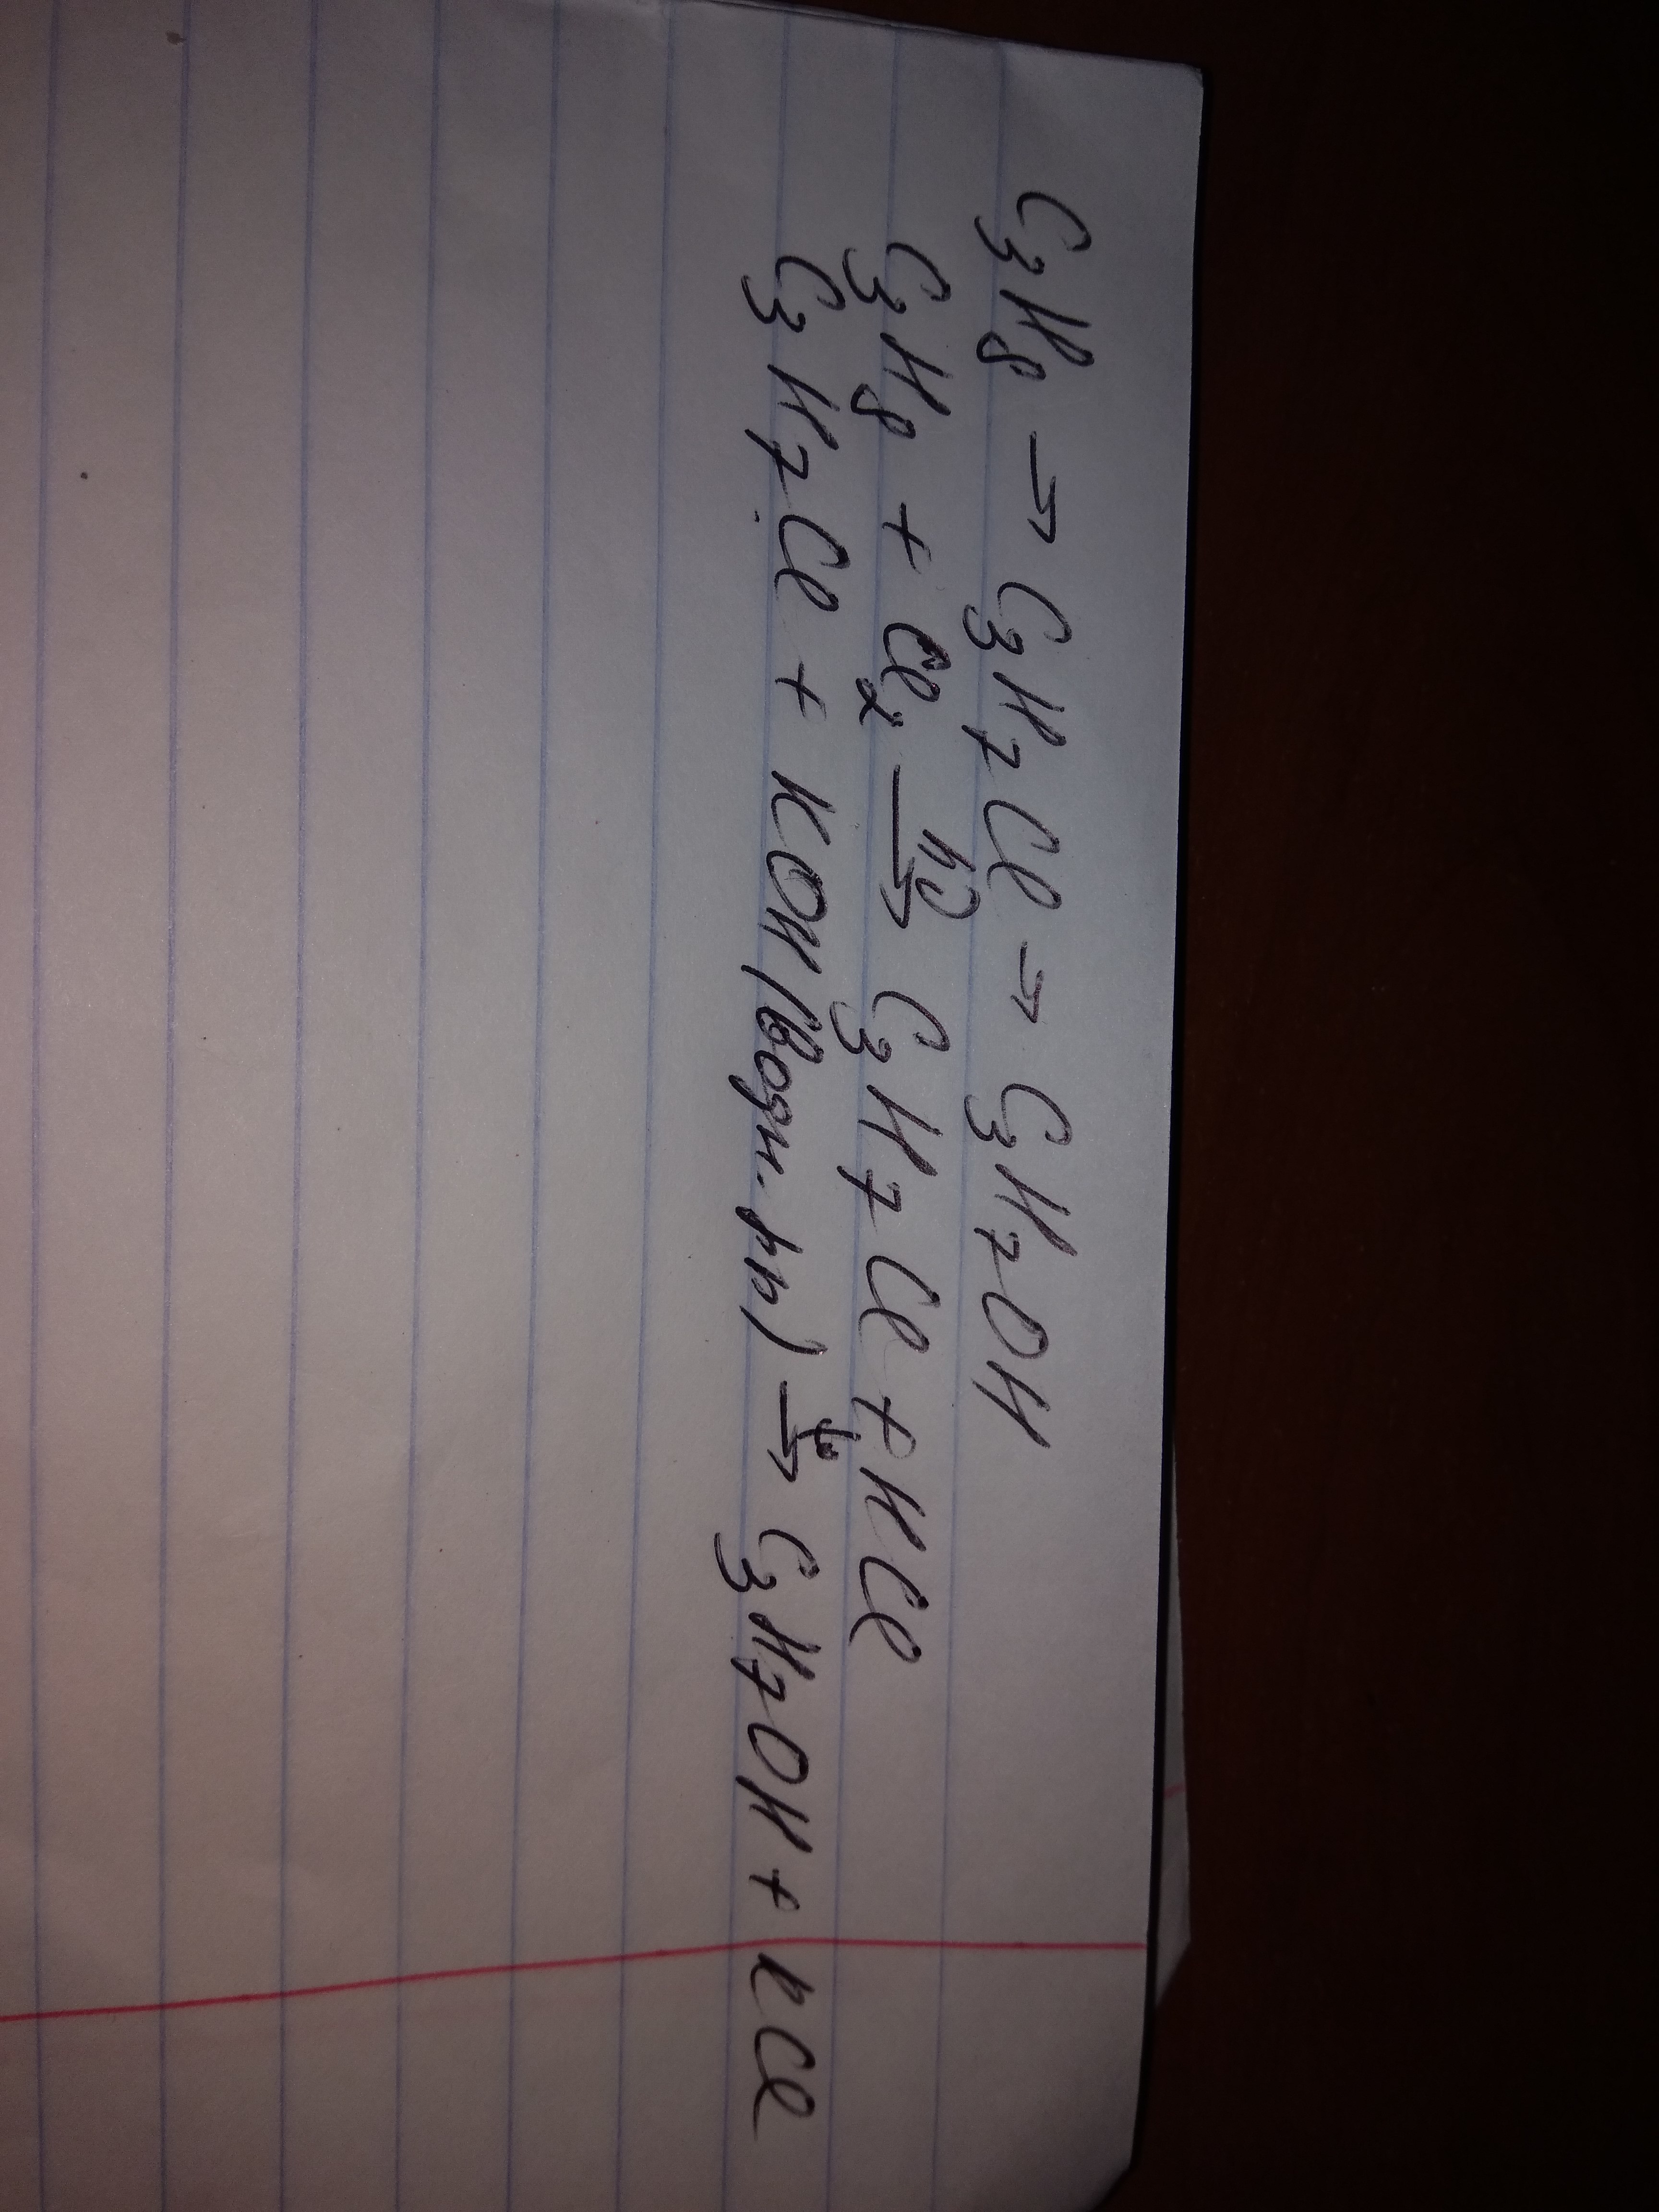 C₃H₈ → C₃H₇Cl → C₃H₇OH
C₃H₈ + Cl₂ —hν→ C₃H₇Cl + HCl
C₃H₇Cl + KOH (водн. рр) —t°→ C₃H₇OH + KCl